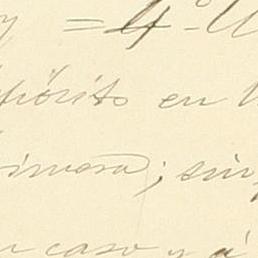 y = 4º - U
pósito en l
imera; sin
n caso y á